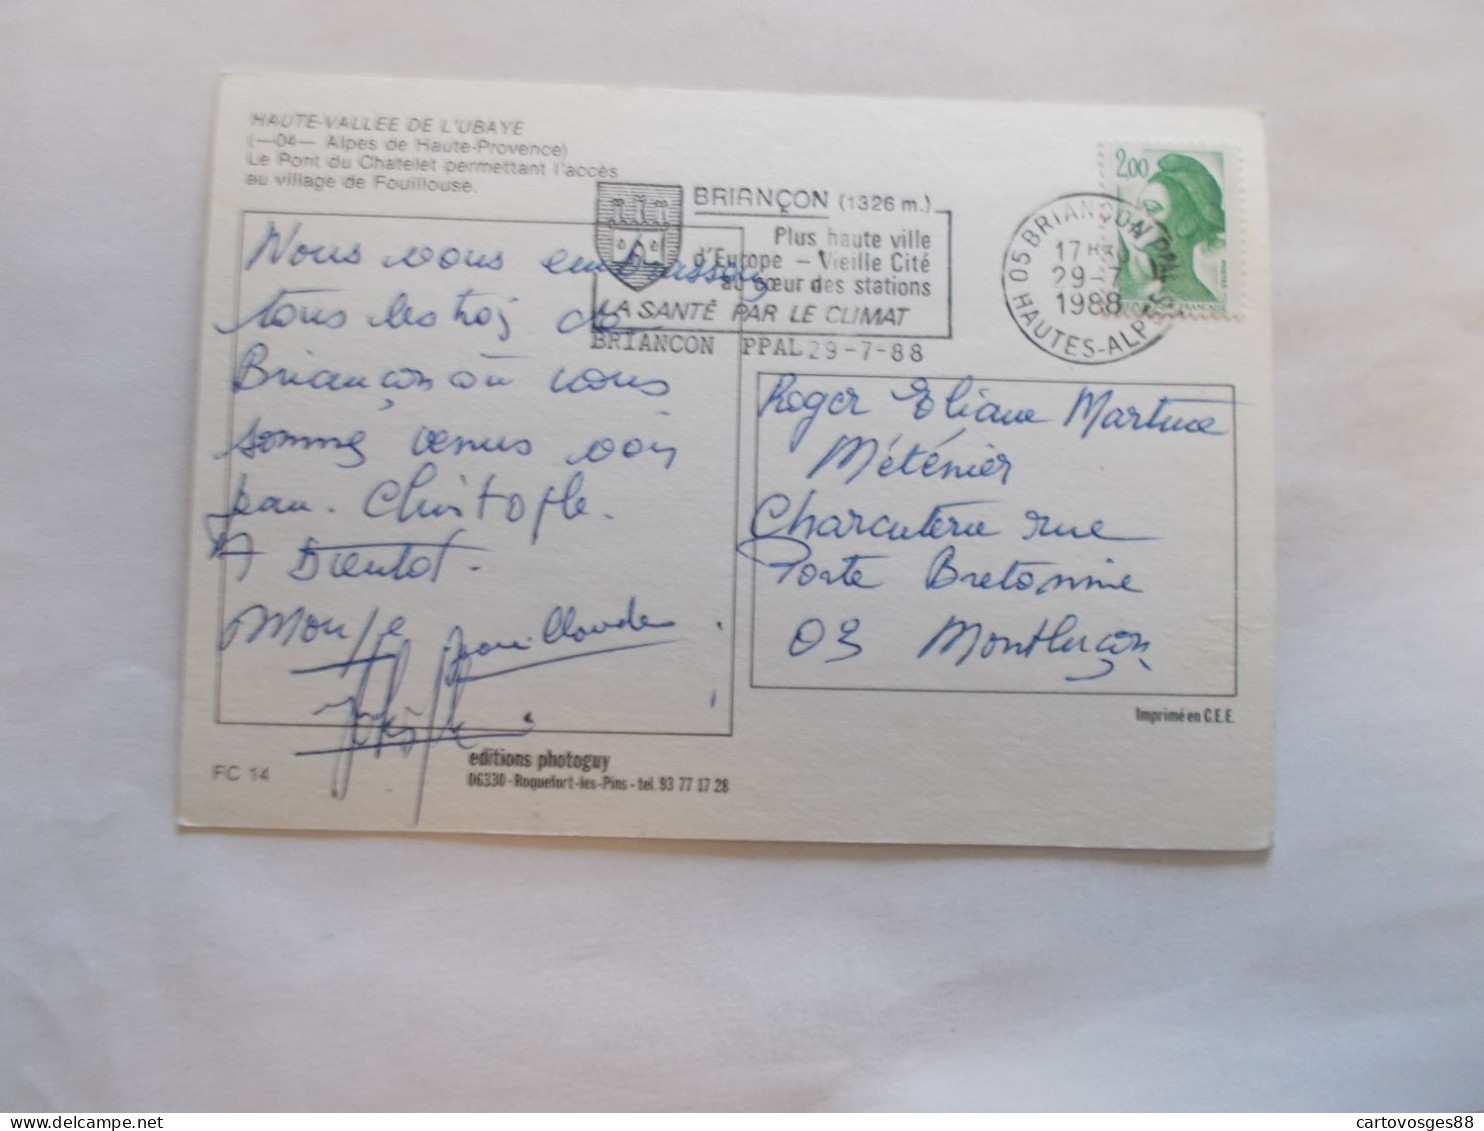 HAUTE-VALLEE DE L'UBAYE
(—04— Alpes de Haute-Provence)
Le Pont du Chatelet permettant l'accès
au village de Fouillouse.
BRIANÇON (1326 m.)
Plus haute ville
d'Europe - Vieille Cité
au cœur des stations
LA SANTÉ PAR LE CLIMAT
BRIANCON PPAL 29-7-88
2,00
05 BRIANÇON PPAL
17 H
29-7
1988
HAUTES-ALPES
Nous vous embrassons
tous les trois de
Briançon où nous
sommes venus voir
Jean-Christophe.
A Bientot.
Jean Claude
Roger Eliane Martine
Méténier
Charcuterie rue
Porte Bretonnie
03 Montluçon
Imprimé en C.E.E.
editions photoguy
06330-Roquefort-les-Pins - tel. 93 77 17 28
FC 14
cartovosges88